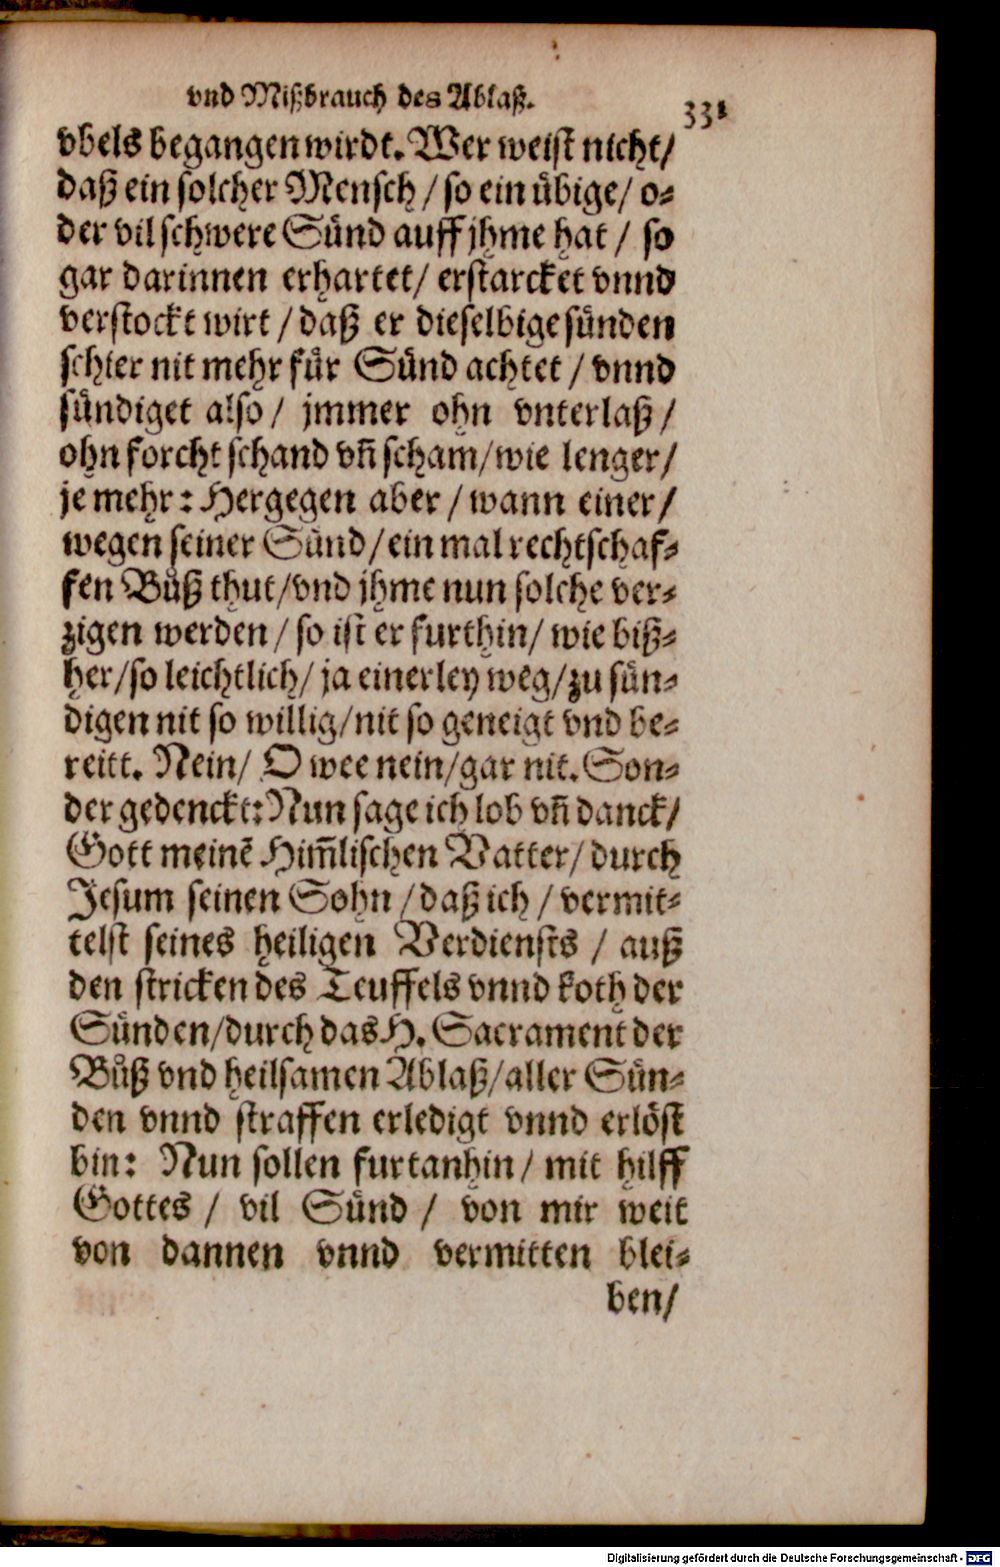 vnd Mißbrauch des Ablaß.
331
vbels begangen wirdt. Wer weist nicht/
daß ein solcher Mensch / so ein übige/ o⸗
der vil schwere Sünd auff jhme hat / so
gar darinnen erhartet/ erstarcket vnnd
verstockt wirt / daß er dieselbige sünden
schier nit mehr für Sünd achtet / vnnd
sündiget also / jmmer ohn vnterlaß /
ohn forcht schand vñ scham/wie lenger/
je mehr: Hergegen aber / wann einer /
wegen seiner Sünd / ein mal rechtschaf⸗
fen Bůß thut/vnd jhme nun solche ver⸗
zigen werden / so ist er furthin/ wie biß⸗
her/so leichtlich/ ja einerley weg/zu sün⸗
digen nit so willig/nit so geneigt vnd be⸗
reitt. Nein/ O wee nein/gar nit. Son⸗
der gedenckt: Nun sage ich lob vñ danck/
Gott meinẽ Him̃lischen Vatter/ durch
Jesum seinen Sohn / daß ich / vermit⸗
telst seines heiligen Verdiensts / auß
den stricken des Teuffels vnnd koth der
Sünden/durch das H. Sacrament der
Bůß vnd heilsamen Ablaß/aller Sün⸗
den vnnd straffen erledigt vnnd erlöst
bin: Nun sollen furtanhin / mit hilff
Gottes / vil Sünd / von mir weit
von dannen vnnd vermitten blei⸗
ben/
Digitalisierung gefördert durch die Deutsche Forschungsgemeinschaft - DFG